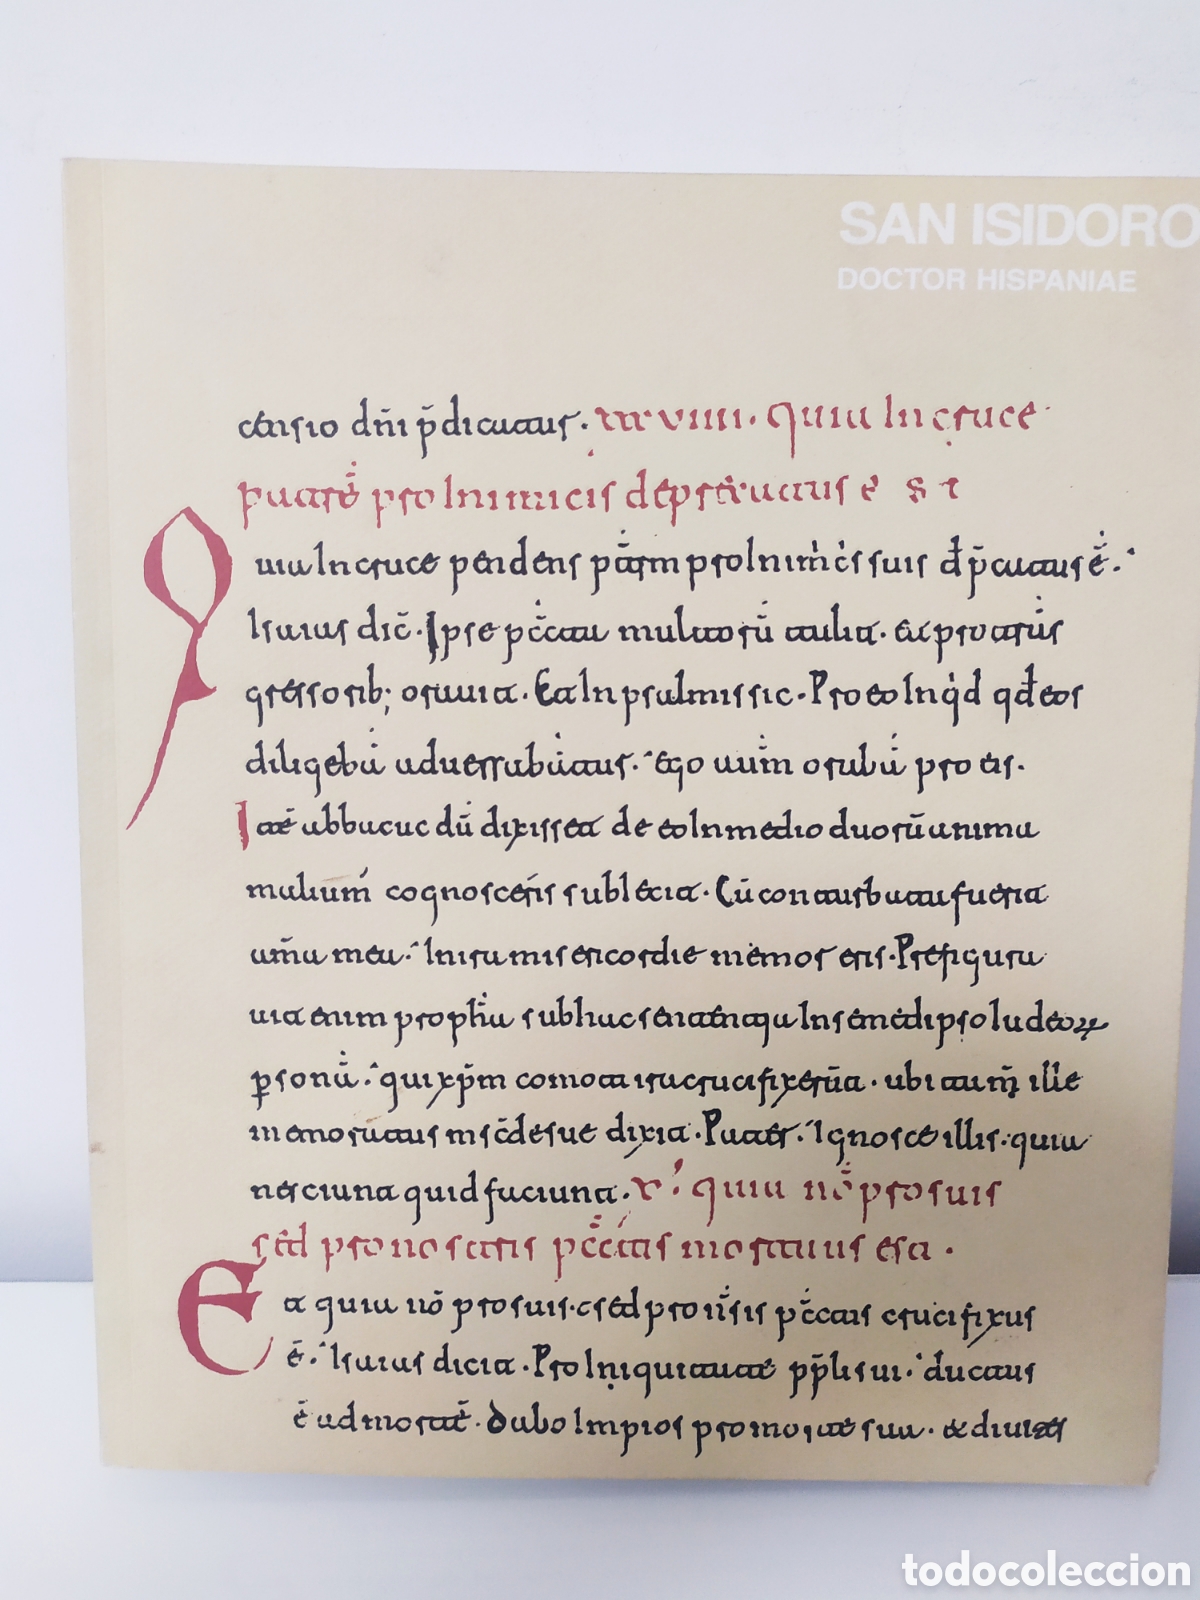 SAN ISIDORO
DOCTOR HISPANIAE
censio dn̄i p̄dicatus. xxxviiii. quia In cruce
patrē pro Inimicis deprecatus ē
Quia In cruce pendens patrm pro Inimcs suis dep̄catus ē.
Isaias dic̄. Ipse pc̄cata multorū tulit. et pro trans
gressorib; orauit. Et In psalmis sic. Pro eo Inqid qd eos
diligebā aduersabātur. ego autm orabā pro eis.
Itē abbacuc dū dixisset de eo In medio duorū anima
malium cognosceris subiecit. Cū conturbata fuerit
anm̄a mea. In ira misericordie memor eris. Prefigura
uit enim propha sub hac sententia In semetipso Iudeorꝝ
ꝑsonā. qui xp̄m comota ira crucifixerūt. ubi tam̄ ille
memoratus msc̄de sue dixit. Pater. Ignosce illis. quia
nesciunt quid faciunt. xl. quia nō pro suis
sed pro nostris pc̄cātis mortuus est.
Et quia nō pro suis. sed pro nr̄sis pc̄catis crucifixus
ē. Isaias dicit. Pro Iniquitate pp̄li sui. ductus
ē ad mortē. Dabo Impios pro morte sua. et diuites
todocoleccion